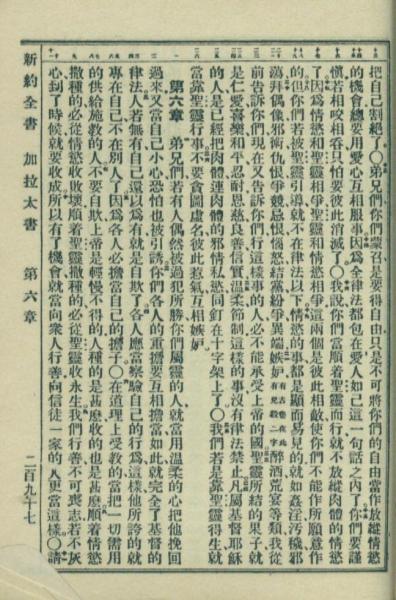 把自己割絕了〇弟兄們你們蒙召是要得自由只是不可將你們的自由當作放縱情慾
的機會總要用愛心互相服事因爲全律法都包在愛人如己這一句話之內了你們要謹
愼若相咬相吞只怕要彼此消滅了〇我說你們當順着聖靈而行就不放縱肉體的情慾
了因爲情慾和聖靈相爭聖靈和情慾相爭這兩個是彼此相敵使你們不能作所願意作
的但你們若被聖靈引導就不在律法以下情慾的事都是顯而易見的就如姦淫汚穢邪
蕩拜偶像邪術仇恨爭競忌恨惱怒結黨紛爭異端嫉妒有古卷在此有兇殺二字醉酒荒宴等類我從
前告訴你們現在又告訴你們行這樣事的人必不能承受上帝的國聖靈所結的果子就
是仁愛喜樂和平忍耐慈良善信實溫柔節制這樣的事沒有律法禁止凡屬基督耶穌
的人是已經把肉體連肉體的邪情私慾同釘在十字架上了〇我們若是靠聖靈得生就
當靠聖靈行事不要貪圖虛名彼此惹氣互相嫉妒
第六章 弟兄們若有人偶然被過犯所勝你們屬靈的人就當用溫柔的心把他挽回
過來又當自己小心恐怕也被引誘你們各人的重擔要互相擔當如此就完全了基督的
律法人若無有自己還以爲有就是自欺了各人應當察驗自己的行爲這樣他所誇的就
專在自己不在別人了因爲各人必擔當自己的擔子〇在道理上受教的當把一切需用
的供給施教的人不要自欺上帝是輕慢不得的人種的是甚麽收的也是甚麽順着情慾
撒種的必從情慾收敗壞順着聖靈撒種的必從聖靈收永生我們行善不可喪志若不灰
心到了時候就要收成所以有了機會就當向衆人行善向信徒一家的人更當這樣〇請
新約全書 加拉太書 第六章 二百九十七